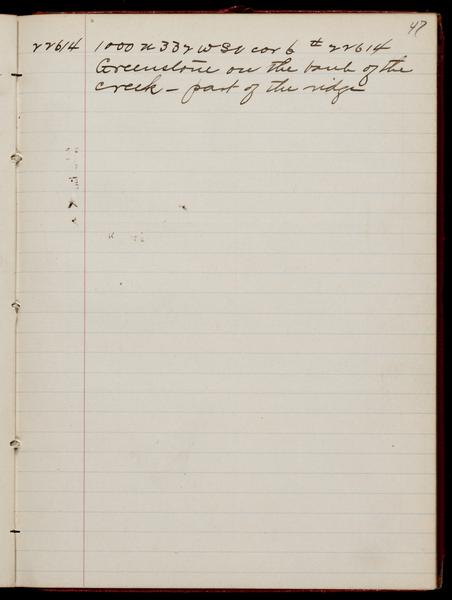 47
22614 1000 N 332 W SE cor 6 # 22614
Greenstone on the bank of the
creek – part of the ridge